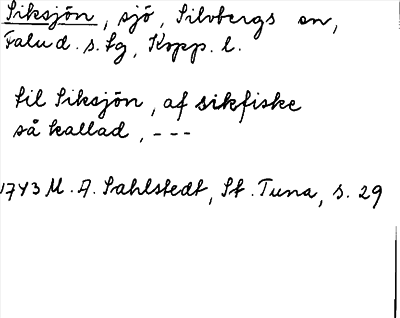 Siksjön, sjö, Silvbergs sn,
Falu d. s. lg, Kopp. l.
til Siksjön, af sikfiske
så kallad, ---
1743 M. A. Sahlstedt, St. Tuna, s. 29